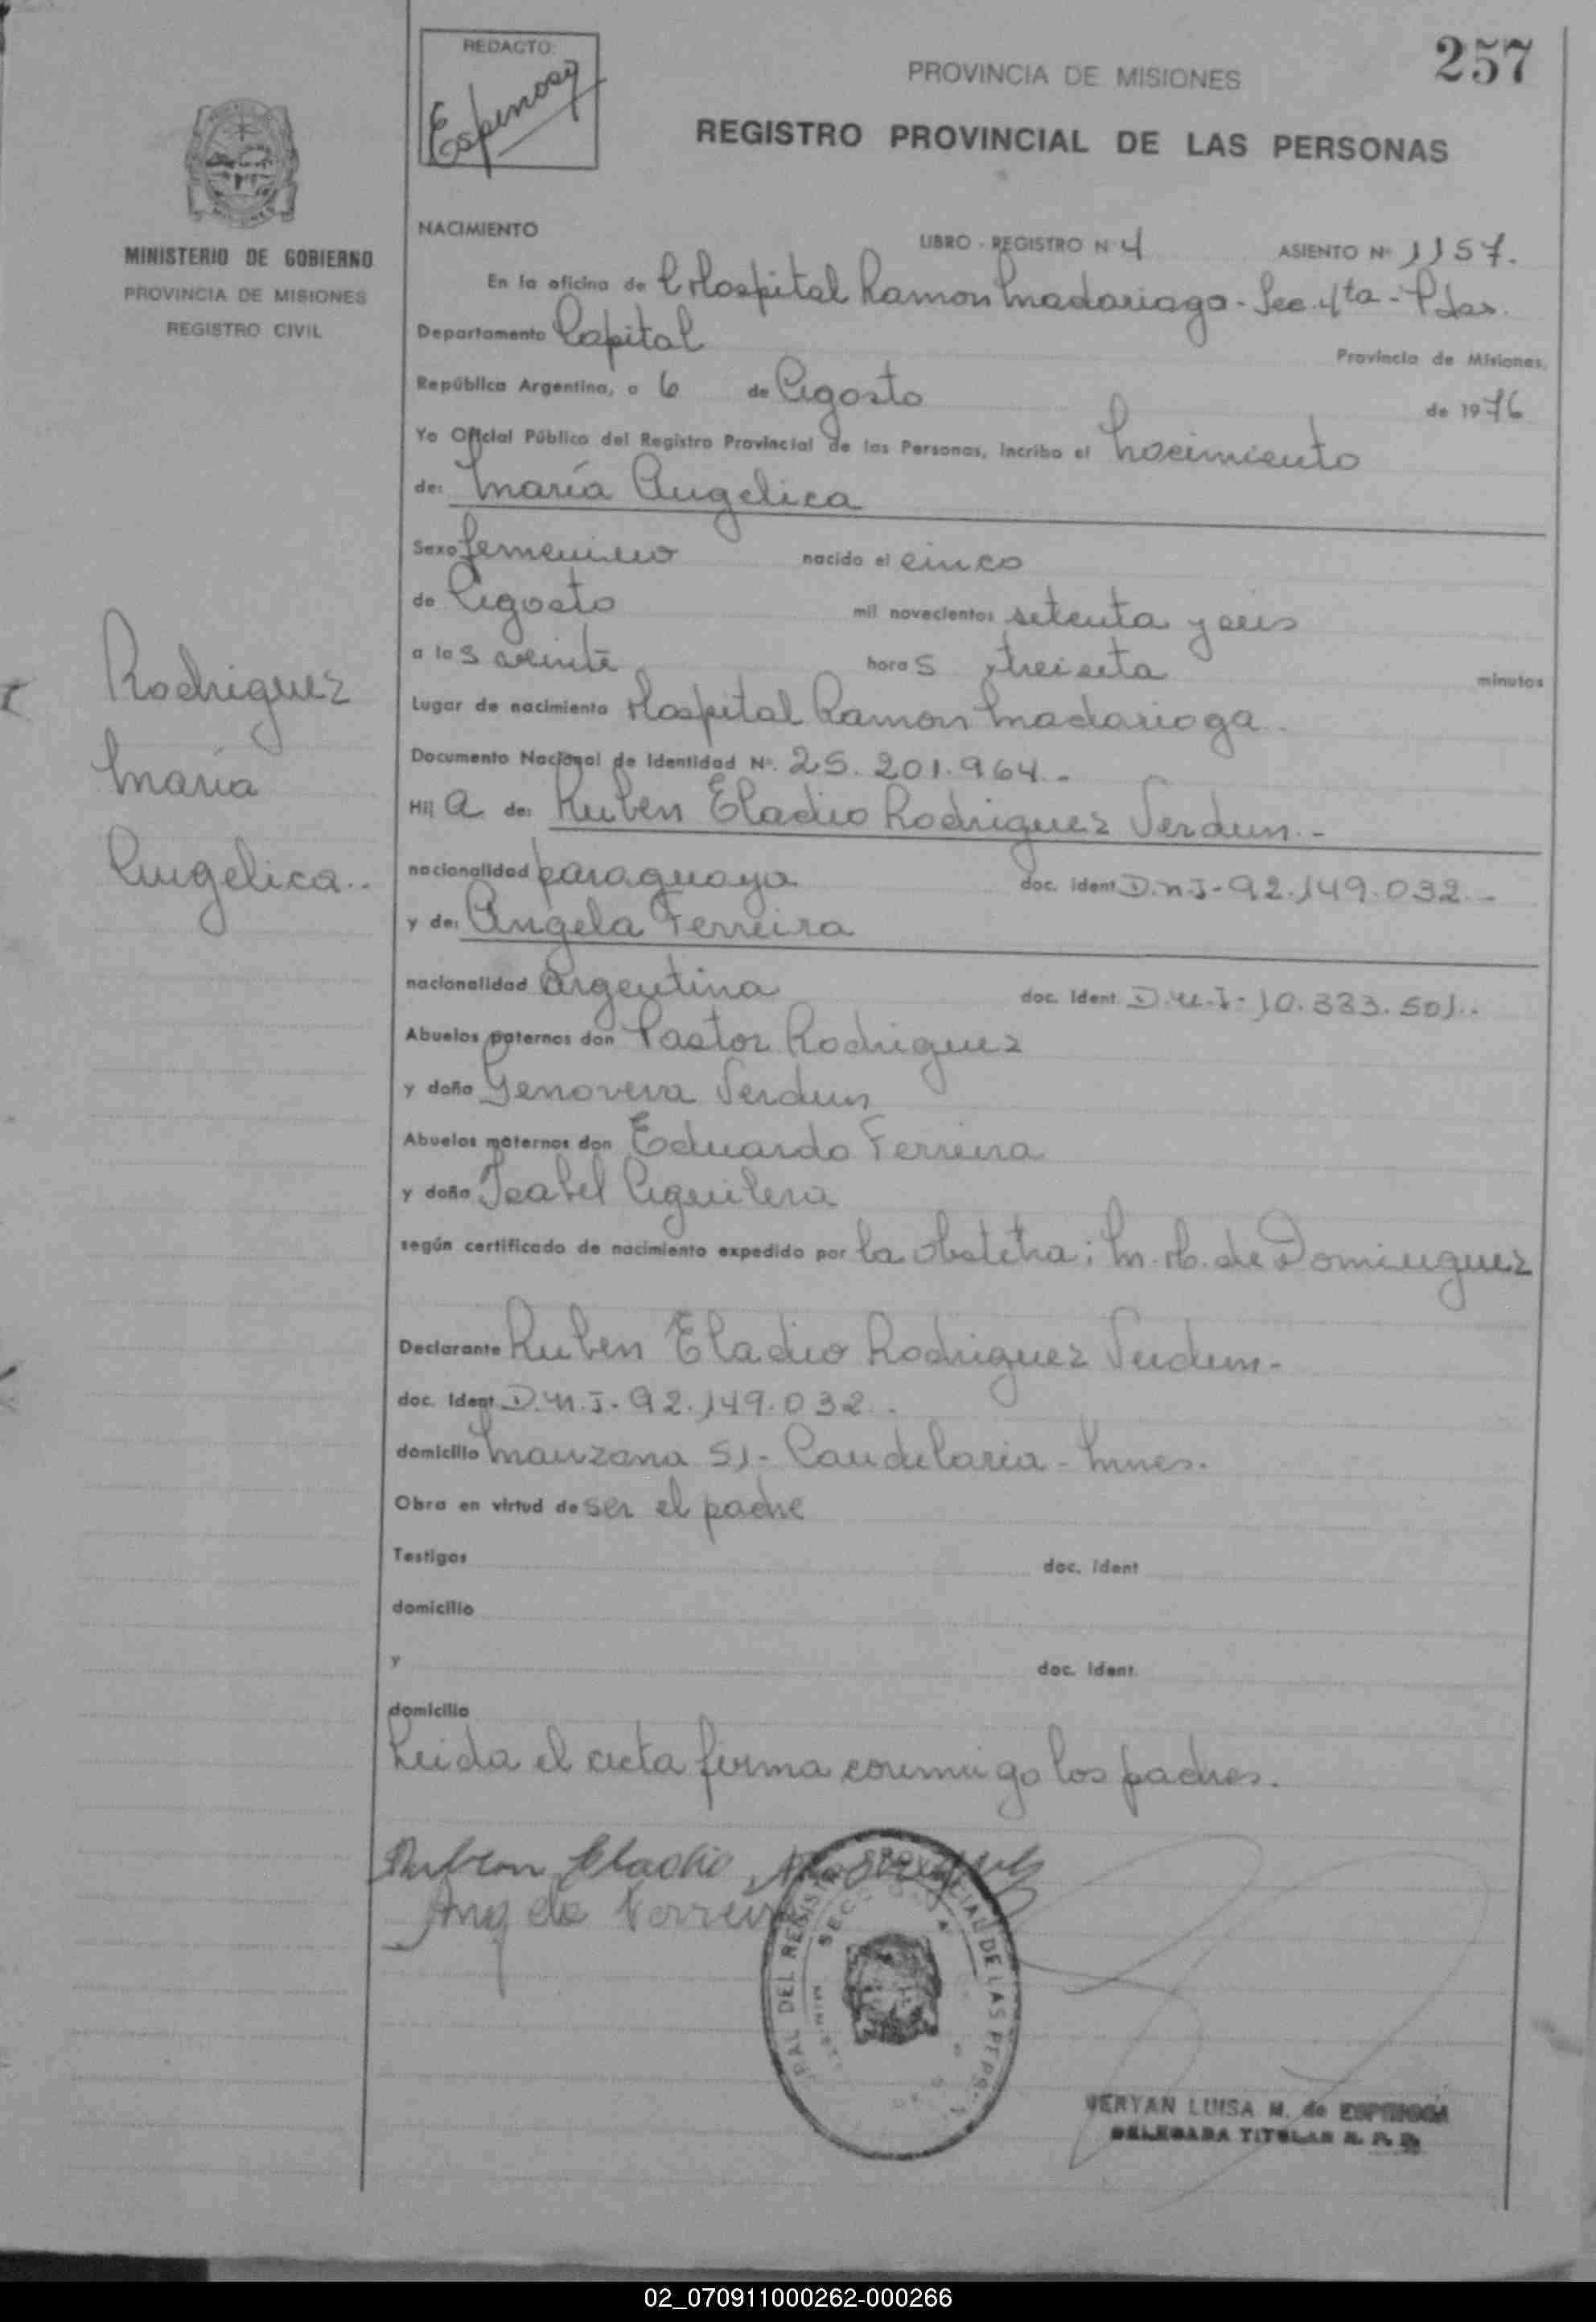 257
REDACTO:
Espinosa
PROVINCIA DE MISIONES
REGISTRO PROVINCIAL DE LAS PERSONAS
MINISTERIO DE GOBIERNO
PROVINCIA DE MISIONES
REGISTRO CIVIL
NACIMIENTO
LIBRO - REGISTRO Nº 4 ASIENTO Nº 1157.
En la oficina de Hospital Ramon Madariaga - Sec. 4ta - Pdas.
Departamento Capital
Provincia de Misiones,
República Argentina, a 6 de Agosto de 1976
Yo Oficial Público del Registro Provincial de las Personas, incribo el nacimiento
de: María Angelica
Sexo femenino nacido el cinco
de Agosto mil novecientos setenta y seis
a las veinte horas treinta minutos
Rodriguez
María
Angelica..
Lugar de nacimiento Hospital Ramon Madariaga.
Documento Nacional de Identidad Nº. 25.201.964.-
Hija de: Ruben Eladio Rodriguez Verdun.-
nacionalidad paraguaya doc. ident. D.N.I-92.149.032.-
y de: Angela Ferreira
nacionalidad Argentina doc. ident. D.N.I-10.333.501..
Abuelos paternos don Pastor Rodriguez
y doña Genoveva Verdun
Abuelos maternos don Eduardo Ferreira
y doña Isabel Aguilera
según certificado de nacimiento expedido por la obstetra: M. H. de Dominguez
Declarante Ruben Eladio Rodriguez Verdun-
doc. ident. D.N.I-92.149.032..
domicilio Manzana 51- Candelaria - Mnes.
Obra en virtud de ser el padre
Testigos doc. ident
domicilio
y doc. ident.
domicilio
Leida el acta firma conmigo los padres.
Ruben Eladio Rodriguez
Angela Ferreira
DEL REGISTRO PROVINCIAL DE LAS PERS
SECC
MERYAN LUISA M. de ESPINOSA
DELEGADA TITULAR R. P. P.
02_070911000262-000266